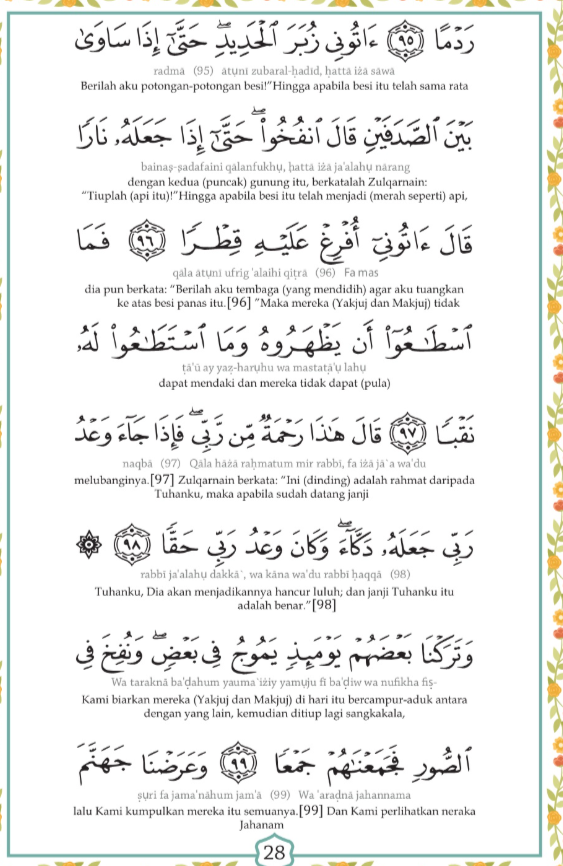 رَدْمًا ﴿٩٥﴾ ءَاتُونِي زُبَرَ ٱلْحَدِيدِ ۖ حَتَّىٰٓ إِذَا سَاوَىٰ
radmā (95) ātụnī zubaral-ḥadīd, ḥattā iżā sāwā
Berilah aku potongan-potongan besi!"Hingga apabila besi itu telah sama rata
بَيْنَ ٱلصَّدَفَيْنِ قَالَ ٱنفُخُوا۟ ۖ حَتَّىٰٓ إِذَا جَعَلَهُۥ نَارًا
bainaṣ-ṣadafaini qālanfukhụ, ḥattā iżā ja'alahụ nārang
dengan kedua (puncak) gunung itu, berkatalah Zulqarnain:
"Tiuplah (api itu)!"Hingga apabila besi itu telah menjadi (merah seperti) api,
قَالَ ءَاتُونِيٓ أُفْرِغْ عَلَيْهِ قِطْرًا ﴿٩٦﴾ فَمَا
qāla ātụnī ufrig 'alaihi qiṭrā (96) Fa mas
dia pun berkata: "Berilah aku tembaga (yang mendidih) agar aku tuangkan
ke atas besi panas itu.[96] "Maka mereka (Yakjuj dan Makjuj) tidak
ٱسْطَـٰعُوٓا۟ أَن يَظْهَرُوهُ وَمَا ٱسْتَطَـٰعُوا۟ لَهُۥ
ṭā'ū ay yaẓ-harụhu wa mastatā'ụ lahụ
dapat mendaki dan mereka tidak dapat (pula)
نَقْبًا ﴿٩٧﴾ قَالَ هَـٰذَا رَحْمَةٌ مِّن رَّبِّي ۖ فَإِذَا جَآءَ وَعْدُ
naqbā (97) Qāla hāżā raḥmatum mir rabbī, fa iżā jā`a wa'du
melubanginya.[97] Zulqarnain berkata: "Ini (dinding) adalah rahmat daripada
Tuhanku, maka apabila sudah datang janji
رَبِّي جَعَلَهُۥ دَكَّآءَ ۖ وَكَانَ وَعْدُ رَبِّي حَقًّا ﴿٩٨﴾ ۞
rabbī ja'alahụ dakkā`, wa kāna wa'du rabbī ḥaqqā (98)
Tuhanku, Dia akan menjadikannya hancur luluh; dan janji Tuhanku itu
adalah benar."[98]
وَتَرَكْنَا بَعْضَهُمْ يَوْمَئِذٍ يَمُوجُ فِي بَعْضٍ ۖ وَنُفِخَ فِي
Wa taraknā ba'ḍahum yauma`iżiy yamụju fī ba'ḍiw wa nufikha fiṣ-
Kami biarkan mereka (Yakjuj dan Makjuj) di hari itu bercampur-aduk antara
dengan yang lain, kemudian ditiup lagi sangkakala,
ٱلصُّورِ فَجَمَعْنَـٰهُمْ جَمْعًا ﴿٩٩﴾ وَعَرَضْنَا جَهَنَّمَ
ṣụri fa jama'nāhum jam'ā (99) Wa 'araḍnā jahannama
lalu Kami kumpulkan mereka itu semuanya.[99] Dan Kami perlihatkan neraka
Jahanam
28